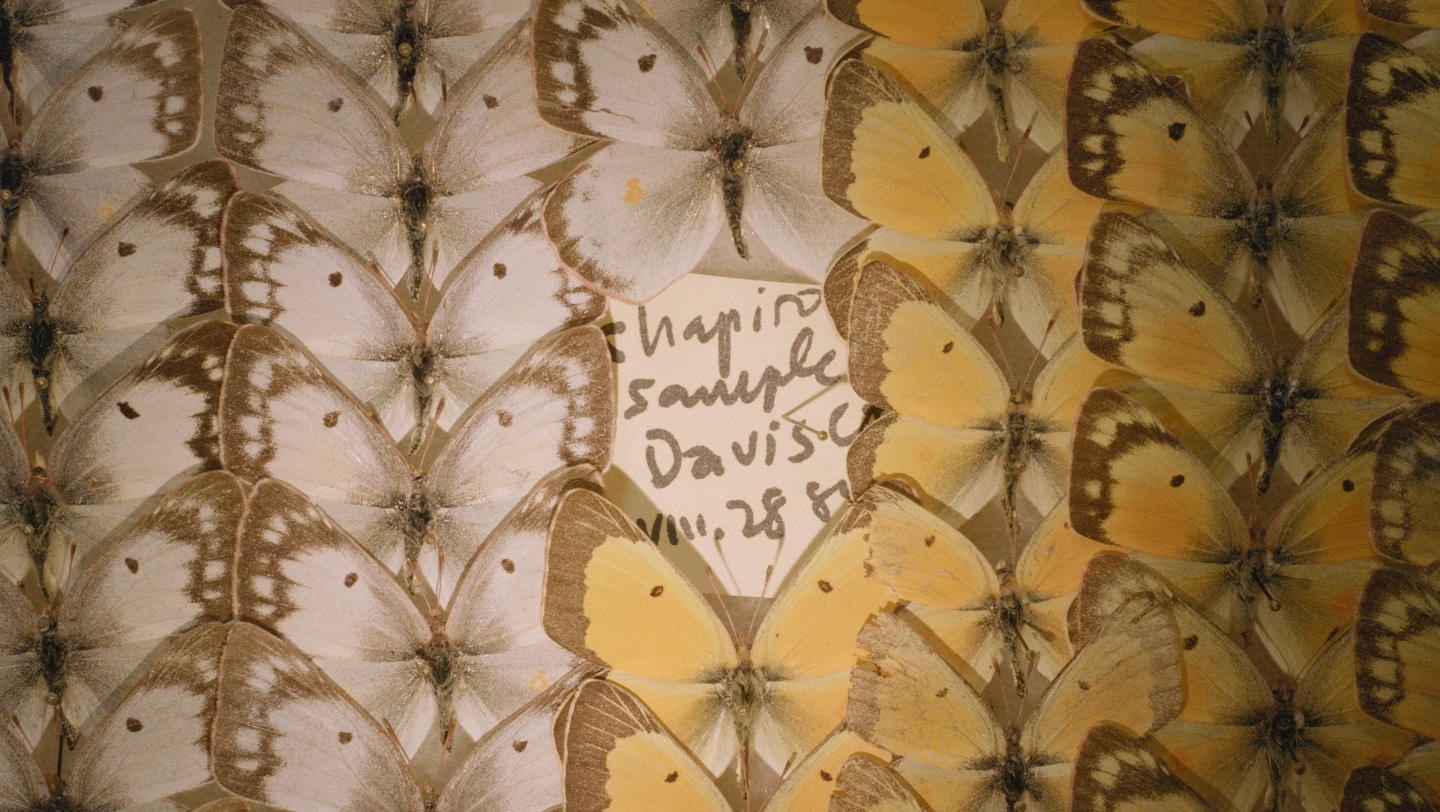 Shapiro
sample
Davis C
VIII. 28